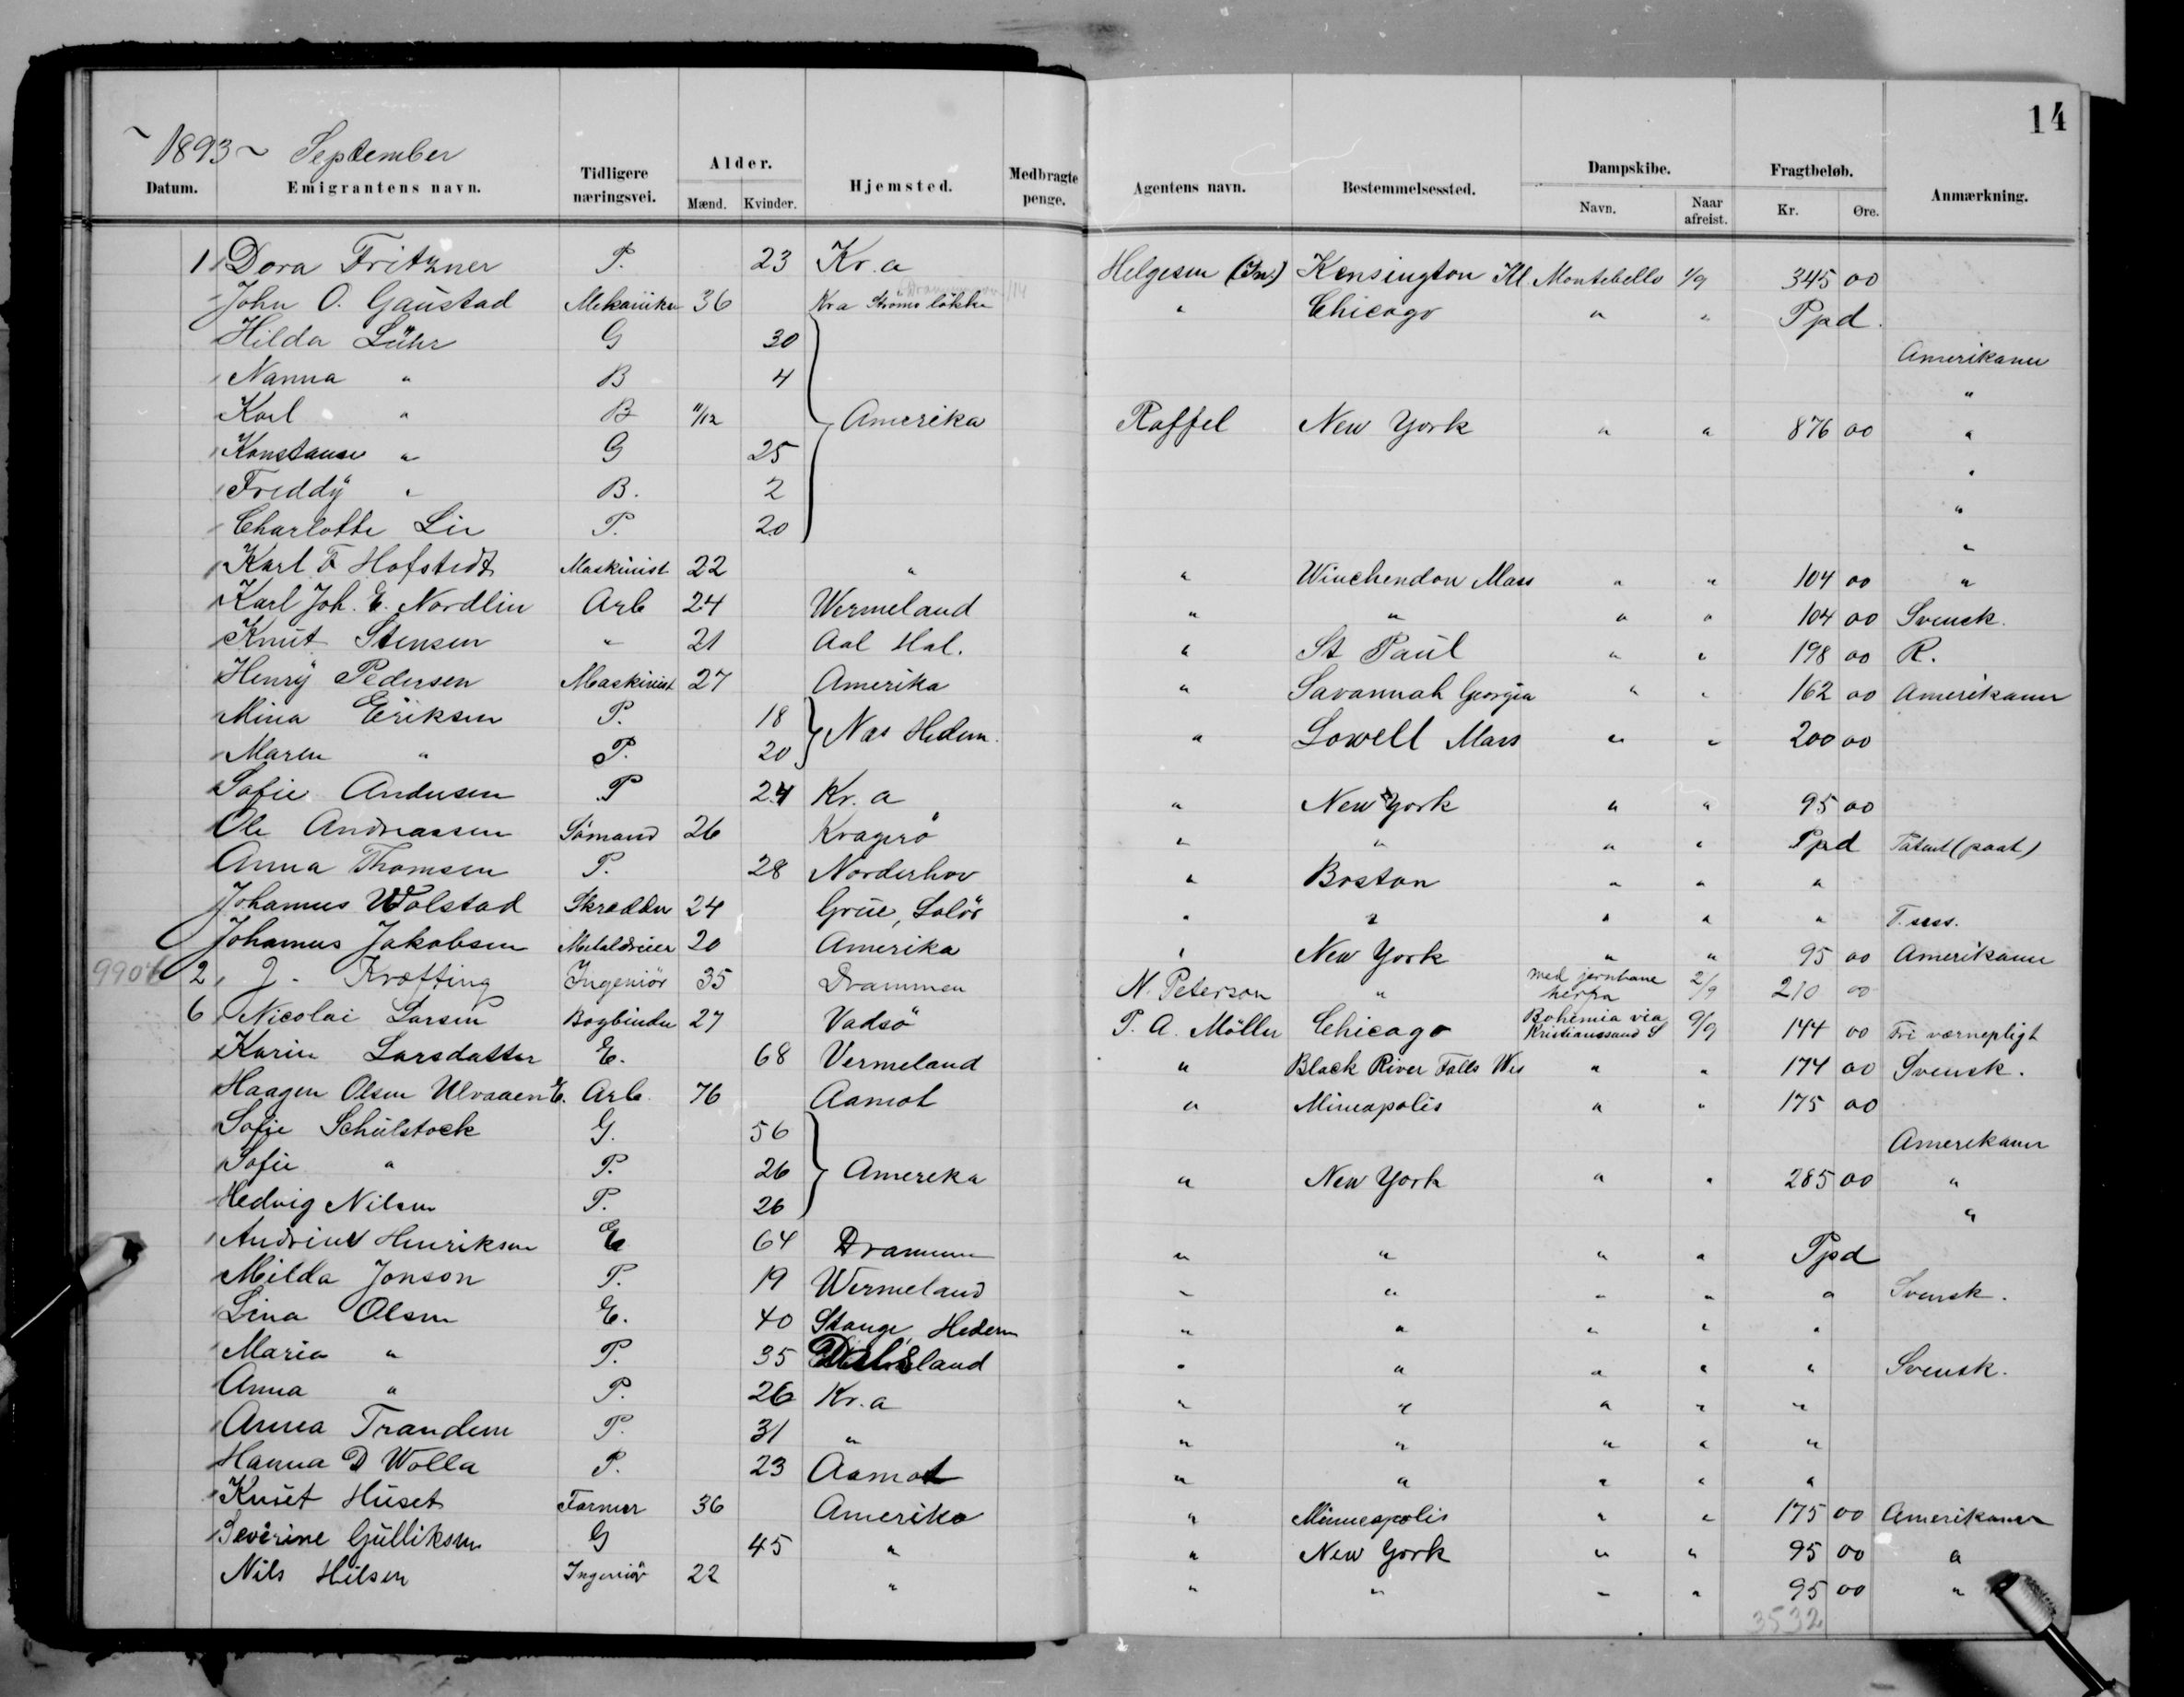 14
~ 1893 ~ September
Datum. Emigrantens navn. Tidligere næringsvei. Alder. Mænd. Kvinder. Hjemsted. Medbragte penge. Agentens navn. Bestemmelsessted. Dampskibe. Navn. Naar afreist. Fragtbeløb. Kr. Øre. Anmærkning.
1 Dora Fritzner P. 23 Kr.a Helgesen (Jn.) Kensington Ill. Montebello 1/9 345 00
John O. Gaustad Mekaniker 36 Kra Strøms løkke " Chicago " " Ppd.
Hilda Lühr G 30 Amerikaner
Nanna " B 4 "
Karl " B 11/12 Amerika Raffel New York " " 876 00 "
Konstanse " G 25 "
Freddy " B. 2 "
Charlotte Lie P. 20 "
Karl F Hofstedt Maskinist 22 " " Winchendon Mass " " 104 00 "
Karl Joh. E. Nordlin Arb 24 Wermeland " " " " 104 00 Svensk.
Knut Stensen " 21 Aal Hal. " St Paul " " 198 00 R.
Henry Pedersen Maskinist 27 Amerika " Savannah Georgia " " 162 00 Amerikaner
Mina Eriksen P. 18 Næs Hedem. " Lowell Mass " " 200 00
Maren " P. 20
Sofie Andersen P 24 Kr. a " New York " " 95 00
Ole Andreassen Sömand 26 Kragerö " " " " Ppd Patent (paat)
Anna Thomsen P. 28 Norderhov " Boston " " "
Johannes Wolstad Skrædder 24 Grue, Solör " " " " " T. sess.
Johannes Jakobsen Metaldreier 20 Amerika " New York " " 95 00 Amerikaner
2 J. Kræfting Ingeniör 35 Drammen N. Peterson " med jernbane herfra 2/9 210 00
6 Nicolai Larsen Bogbinder 27 Vadsö P. A. Möller Chicago Bohemia via Kristianssand S 9/9 144 00 Fri værnepligt
Karin Larsdatter E. 68 Vermeland " Black River Falls Wis " " 174 00 Svensk.
Haagen Olsen Ulvaaen E. Arb. 76 Aamot " Mineapolis " " 175 00
Sofie Schulstock G. 56 Amerekaner
Sofie " P. 26 Amereka " New York " " 285 00 "
Hedvig Nilsen P. 26 "
Andrine Henriksen E 64 Drammen " " " " Ppd
Milda Jonson P. 19 Wermeland " " " " " Svensk.
Lina Olsen E. 40 Stange, Hedem " " " " "
Maria " P. 35 Dalsland " " " " " Svensk.
Anna " P. 26 Kr. a " " " " "
Anna Trandem P. 31 " " " " " "
Hanna D Wolla P. 23 Aamot " " " " "
Knut Huset Farmer 36 Amerika " Minneapolis " " 175 00 Amerikaner
Severine Gulliksen G 45 " " New York " " 95 00 "
Nils Hilsen Ingeniör 22 " " " " " 95 00 "
3532